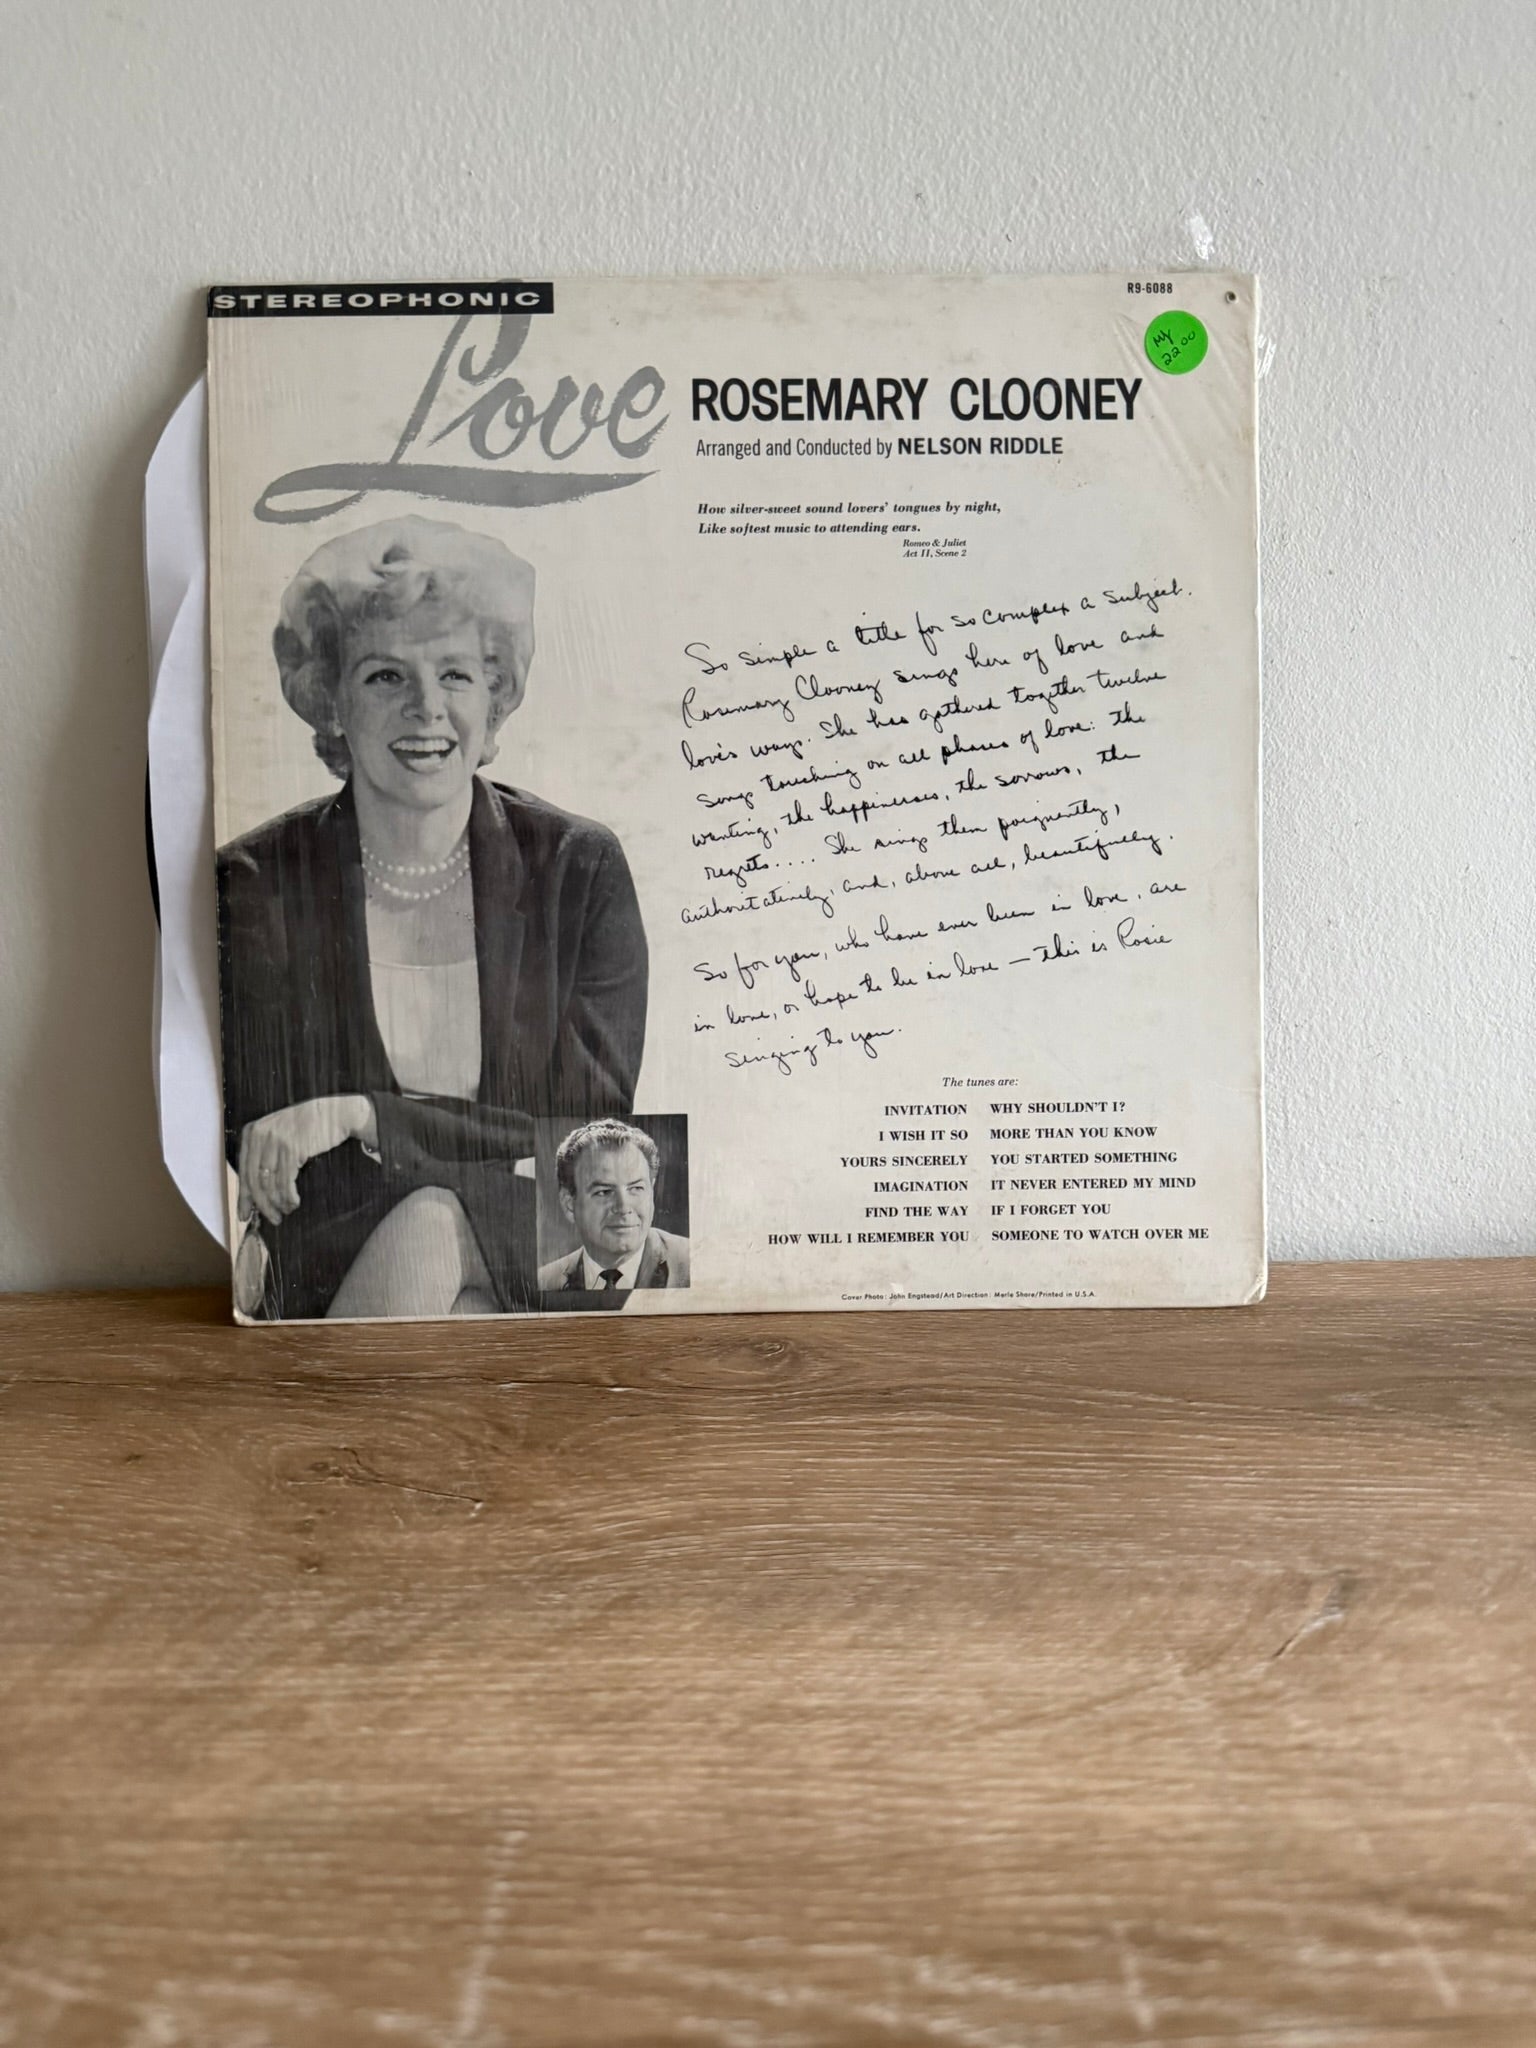 STEREOPHONIC
R9-6088
My
2200
Love
ROSEMARY CLOONEY
Arranged and Conducted by NELSON RIDDLE
How silver-sweet sound lovers' tongues by night,
Like softest music to attending ears.
Romeo & Juliet
Act II, Scene 2
So simple a title for so complex a subject.
Rosemary Clooney sings here of love and
love's ways. She has gathered together twelve
songs touching on all phases of love: the
wanting, the happinesses, the sorrows, the
regrets.... She sings them poignantly,
authoritatively, and, above all, beautifully.
So for you, who have ever been in love, are
in love, or hope to be in love — this is Rosie
singing to you.
The tunes are:
INVITATION WHY SHOULDN'T I?
I WISH IT SO MORE THAN YOU KNOW
YOURS SINCERELY YOU STARTED SOMETHING
IMAGINATION IT NEVER ENTERED MY MIND
FIND THE WAY IF I FORGET YOU
HOW WILL I REMEMBER YOU SOMEONE TO WATCH OVER ME
Cover Photo: John Engstead/Art Direction: Merle Shore/Printed in U.S.A.